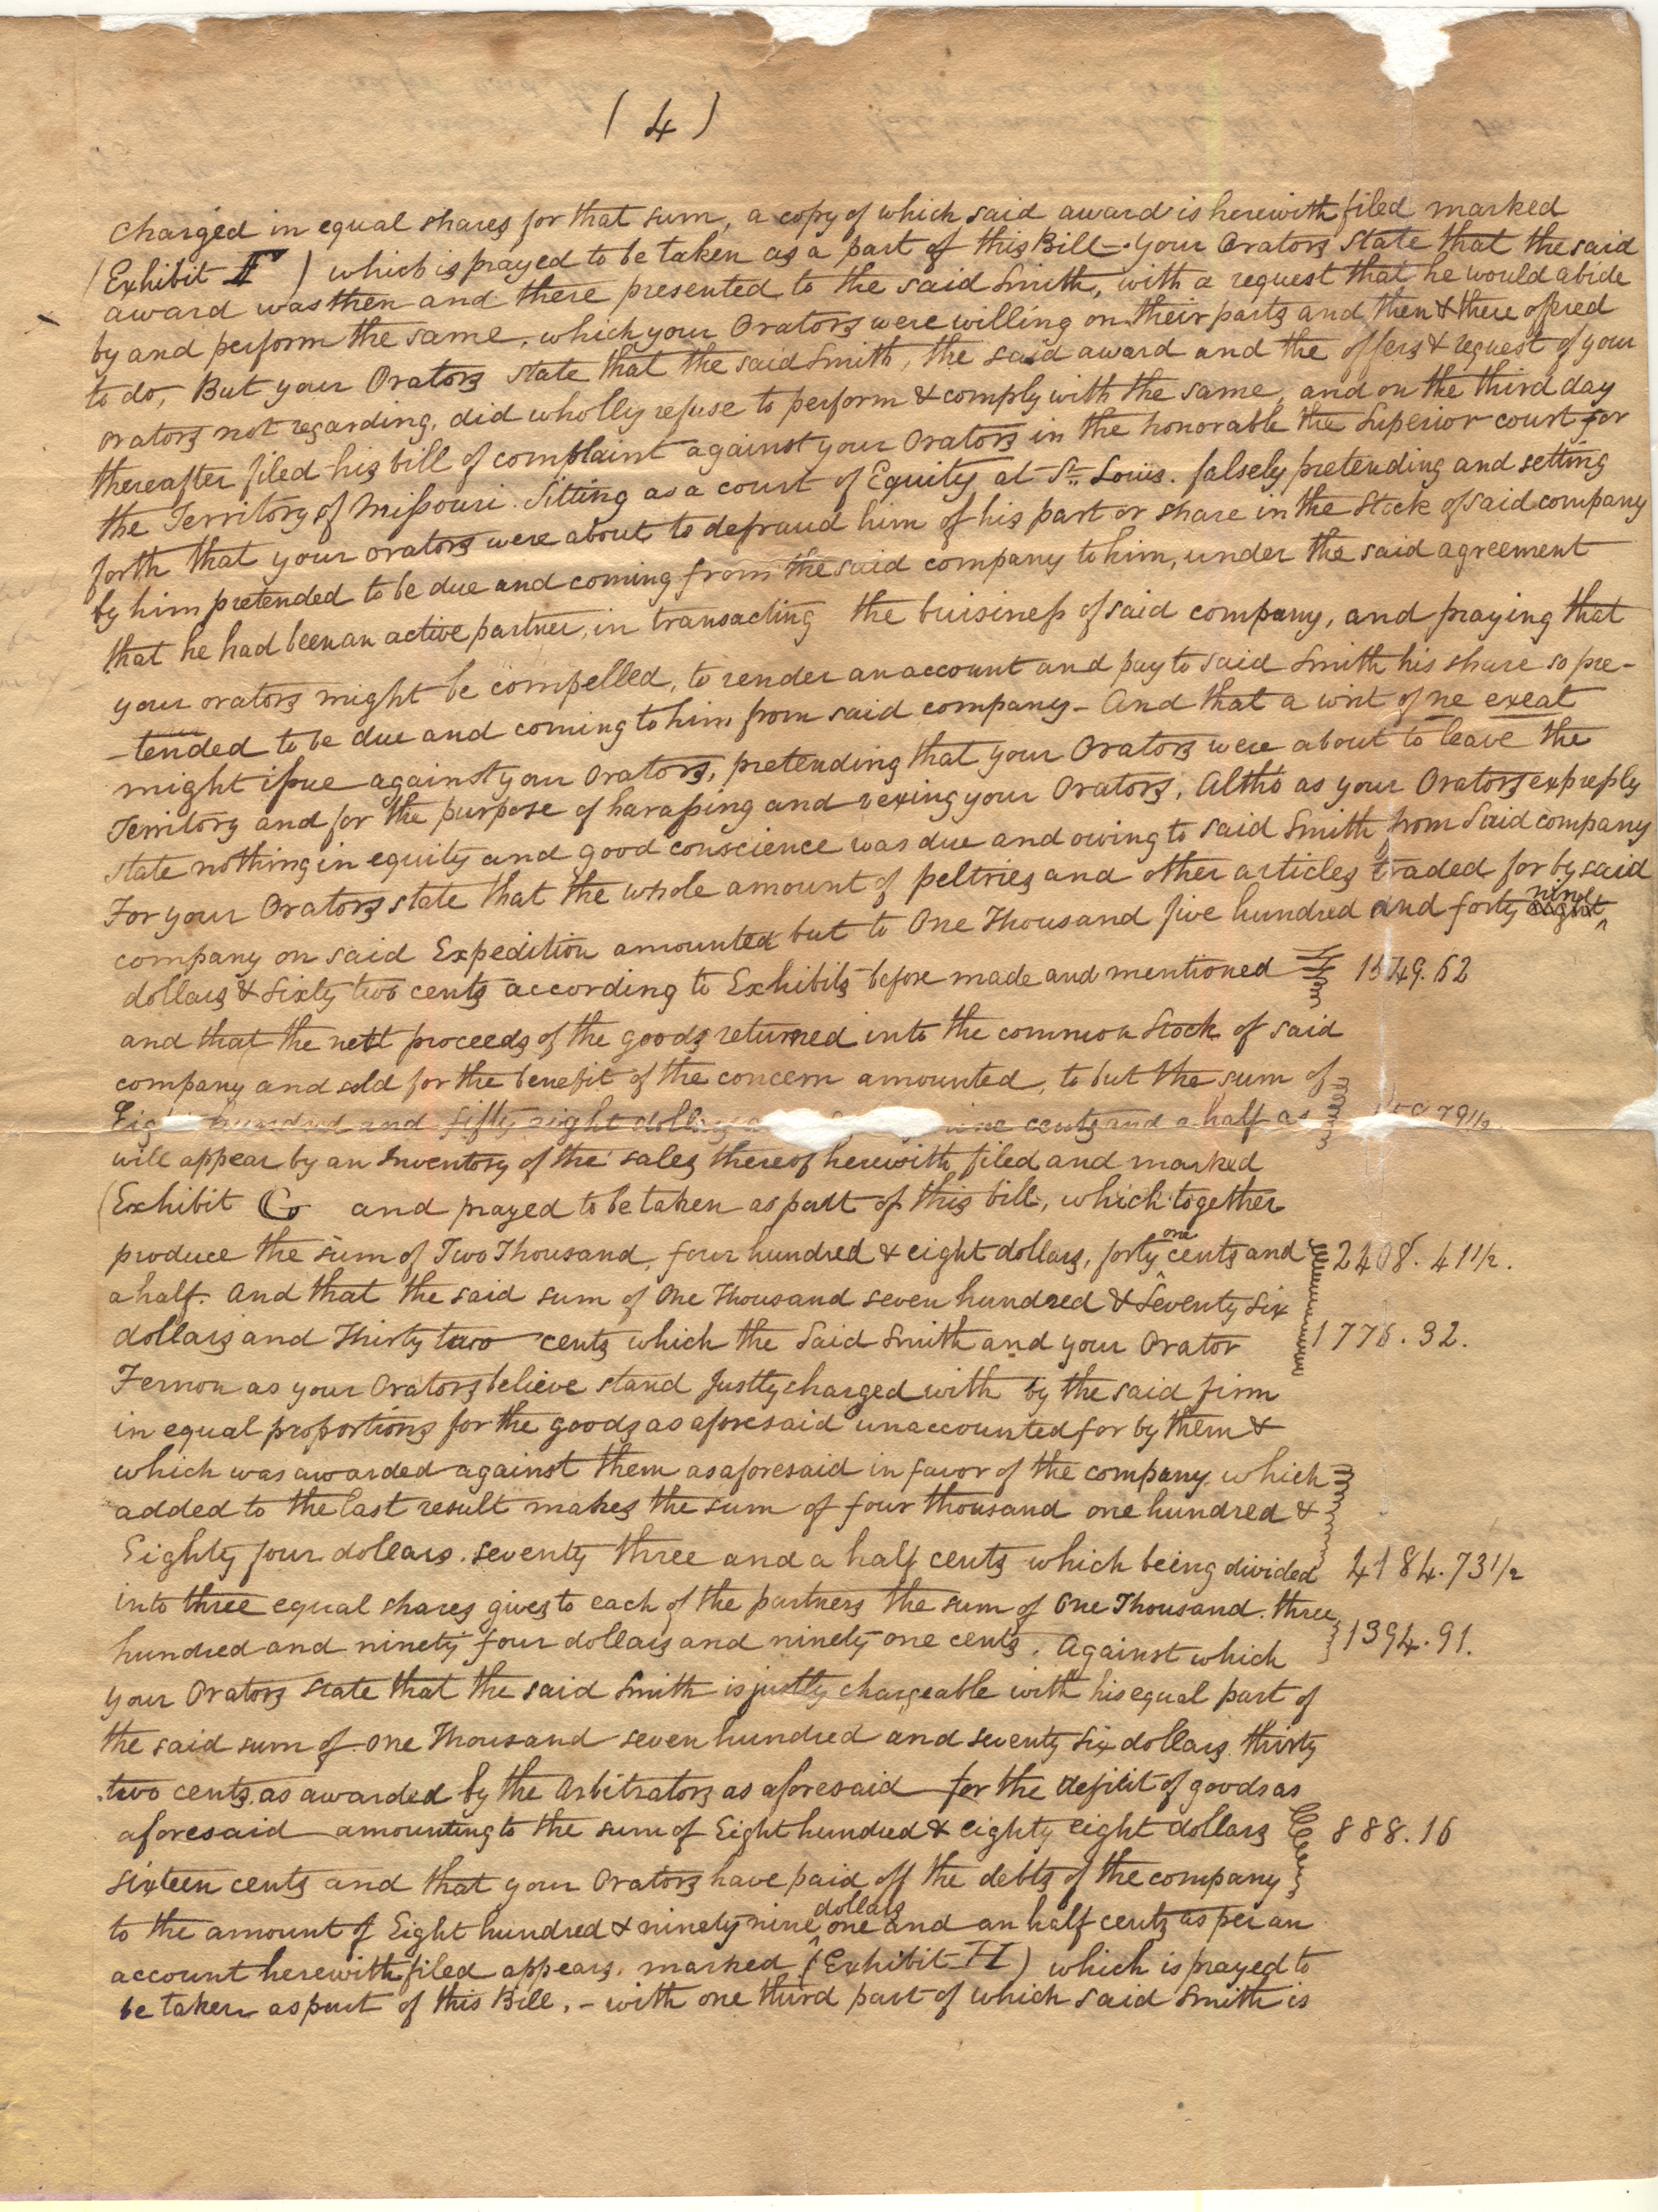 ( 4 )
charged in equal shares for that sum, a copy of which said award is herewith filed marked
(Exhibit F ) which is prayed to be taken as a part of this Bill - Your Orators state that the said
award was then and there presented to the said Smith, with a request that he would abide
by and perform the same, which your Orators were willing on their parts and then & there offered
to do, But your Orators state that the said Smith, the said award and the offers & request of your
orators not regarding, did wholly refuse to perform & comply with the same, and on the third day
thereafter filed his bill of complaint against your Orators in the honorable the Superior court for
the Territory of Missouri. Sitting as a court of Equity at St. Louis. falsely pretending and setting
forth that your orators were about to defraud him of his part or share in the Stock of said company
by him pretended to be due and coming from the said company to him, under the said agreement
that he had been an active partner, in transacting the buisiness of said company, and praying that
your orators might be compelled, to render an account and pay to said Smith his share so pre-
-tended to be due and coming to him from said company - And that a writ of ne exeat
might issue against your Orators, pretending that your Orators were about to leave the
Territory and for the purpose of harassing and vexing your Orators, Altho as your Orators expressly
state nothing in equity and good conscience was due and owing to said Smith from Said company
For your Orators state that the whole amount of peltries and other articles traded for by said
company on said Expedition amounted but to One Thousand five hundred and forty eight nine
dollars & Sixty two cents according to Exhibits before made and mentioned 1549.62
and that the nett proceeds of the goods returned into the common Stock of said
company and sold for the benefit of the concern amounted, to but the sum of
hundred and fifty eight dollars cents and a half as 79 1/2
will appear by an Inventory of the sales thereof herewith filed and marked
(Exhibit G and prayed to be taken as part of this bill, which together
produce the sum of Two Thousand, four hundred & eight dollars, forty one cents and 2408.41 1/2.
a half. And that the said sum of One Thousand seven hundred & Seventy Six
dollars and Thirty two cents which the Said Smith and your Orator 1776.32.
Fernon as your Orators believe stand Justly charged with by the said firm
in equal proportions for the goods as aforesaid unaccounted for by them &
which was awarded against them as aforesaid in favor of the company. which
added to the last result makes the sum of four thousand one hundred &
Eighty four dollars. seventy three and a half cents which being divided 4184.73 1/2
into three equal shares gives to each of the partners the sum of One Thousand. three
hundred and ninety four dollars and ninety one cents. Against which 1394.91.
your Orators state that the said Smith is justly chargeable with his equal part of
the said sum of One Thousand seven hundred and seventy Six dollars. thirty
two cents. as awarded by the Arbitrators as aforesaid for the defitit of goods as
aforesaid amounting to the sum of Eight hundred & eighty eight dollars 888.16
sixteen cents and that your Orators have paid off the debts of the company
to the amount of Eight hundred & ninety nine dollars one and an half cents as per an
account herewith filed appears. marked (Exhibit H) which is prayed to
be taken as part of this Bill. - with one third part of which said Smith is